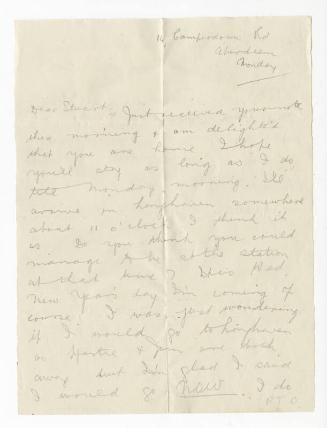 14 Camperdown Rd
Aberdeen
Monday
Dear Stuart,
Just received your note
this morning & am delighted
that you are home. I hope
you'll stay as long as I do
till Monday morning. I'll
arrive in somewhere
about 11 o'clock I think it
is. Do you think you could
manage to be at the station
at that time?
New Year's day I'm coming of
course. I was just wondering
if I would go to
as & are both
away but I'm glad I said
I would go NOW. I do
P.T.O